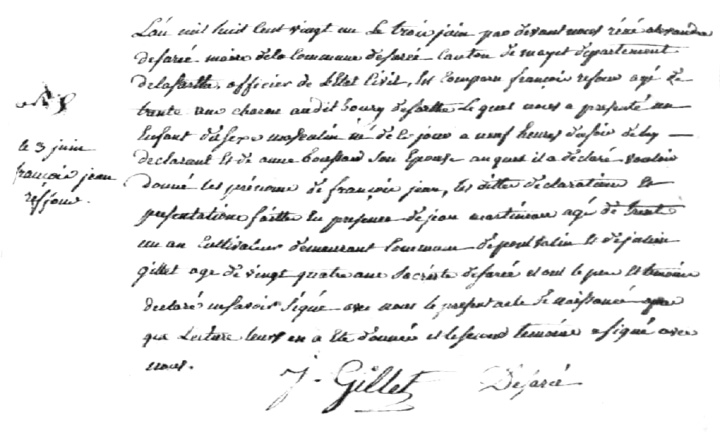 L'an mil huit cent vingt un le trois juin par devant nous rené alexandre
desarcé maire de la Commune desarcé Canton de mayet département
delasarthe, officier de l'Etat Civil, Est Comparu françois refour agé de
trente ans charon audit Bourg desarcé lequel nous a présenté un
Enfant du sexe masculin né de ce jour a neuf heures du soir de luy
declarant Et de anne son Epouse auquel il a déclaré vouloir
donné les prénoms de françois jean, les dittes declarations Et
presentations faittes En presence de jean martineau agé de trente
un an Cultivateur demeurant Commune de pontvalin Et de julien
gillet age de vingt quatre ans Sacriste desarcé et ont le pere Et temoin
declaré ne savoir Signé avec nous le present acte de naissance
que Lecture leurs en a Eté donnée et le second temoins a signé avec
nous.
J. Gillet Desarcé
N° 8
le 3 juin
françois jean
refour.